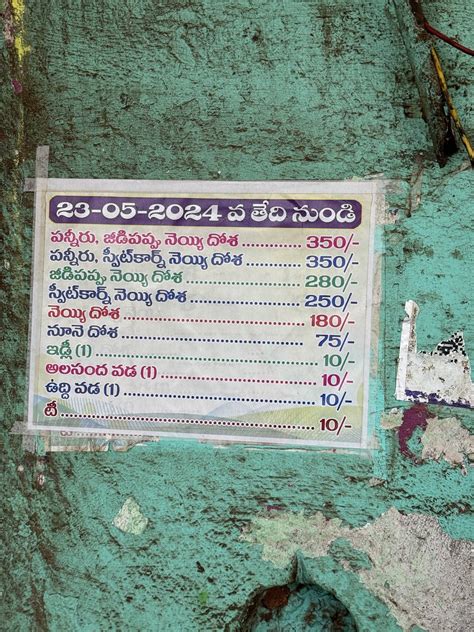 23-05-2024 వ తేది నుండి
పన్నీరు, జీడిపప్పు నెయ్యి దోశ.............. 350/-
పన్నీరు, స్వీట్‌కార్న్ నెయ్యి దోశ.............. 350/-
జీడిపప్పు నెయ్యి దోశ.............. 280/-
స్వీట్‌కార్న్ నెయ్యి దోశ.............. 250/-
నెయ్యి దోశ.............. 180/-
నూనె దోశ.............. 75/-
ఇడ్లీ (1).............. 10/-
అలసంద వడ (1).............. 10/-
ఉద్ది వడ (1).............. 10/-
టీ.............. 10/-